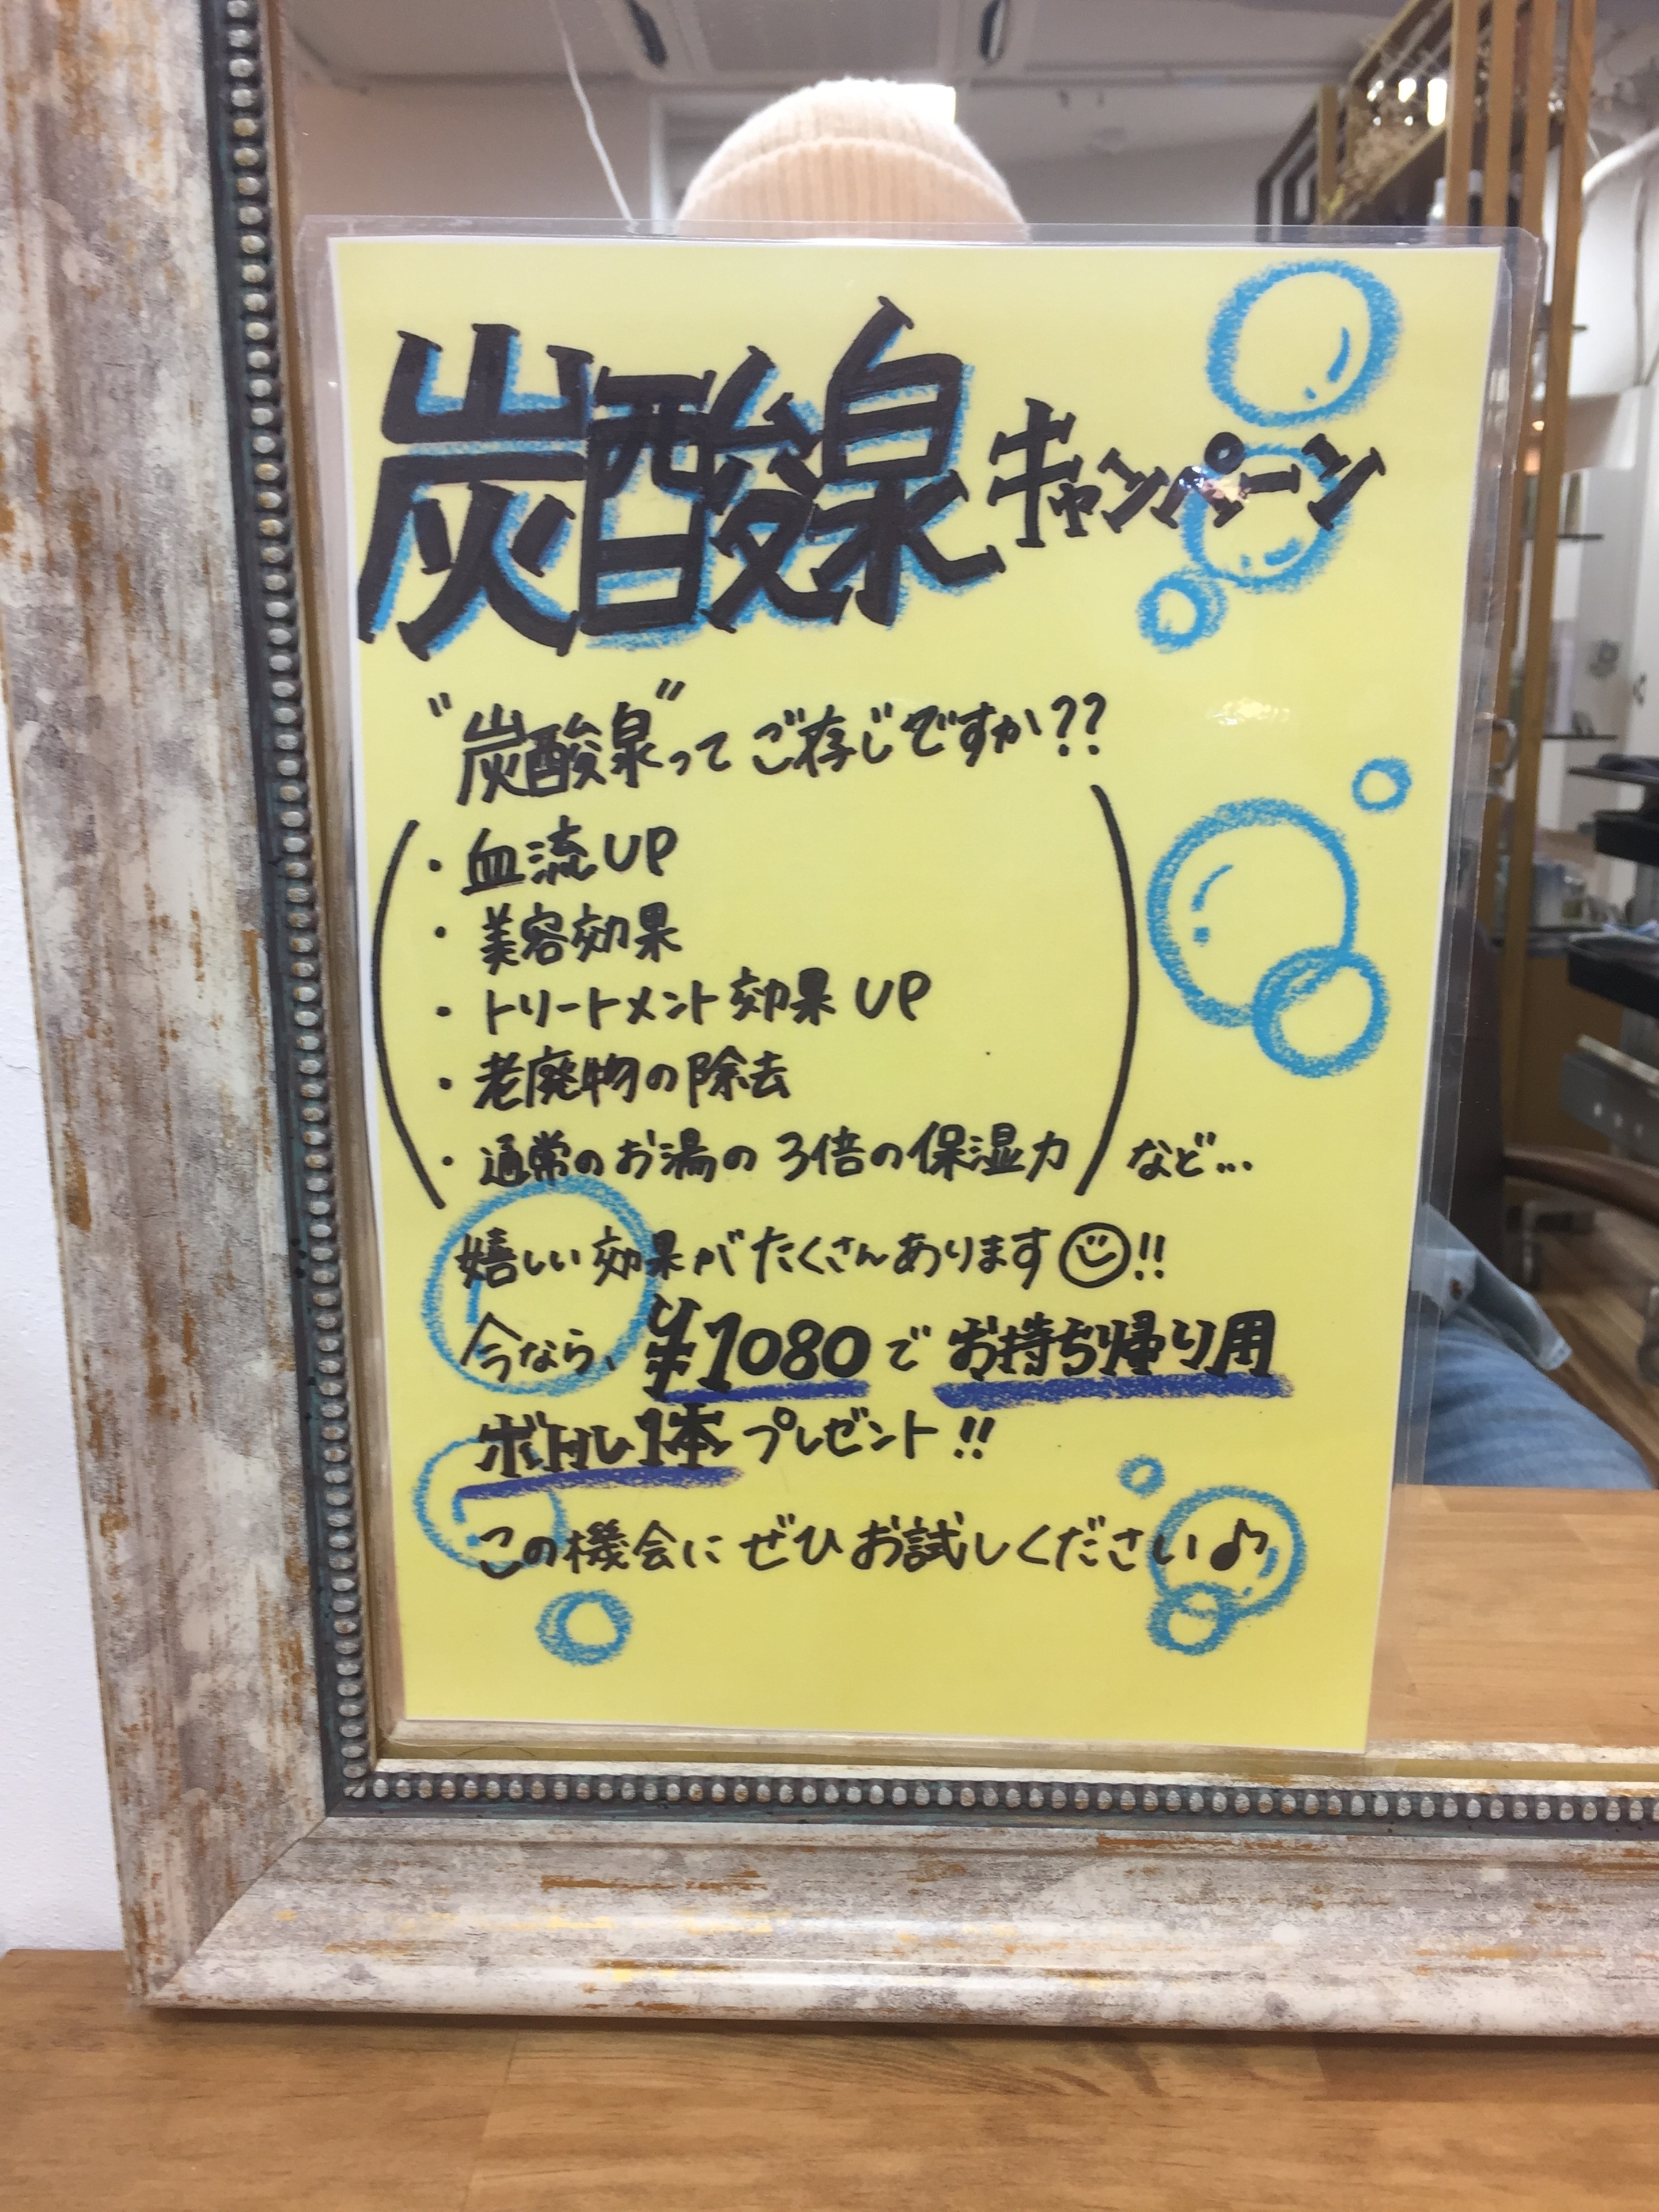 炭酸泉キャンペーン
"炭酸泉"ってご存じですか??
・血流UP
・美容効果
・トリートメント効果UP
・老廃物の除去
・通常のお湯の3倍の保湿力 など...
嬉しい効果がたくさんあります☺!!
今なら、¥1080でお持ち帰り用
ボトル1本プレゼント!!
この機会にぜひお試しください♪